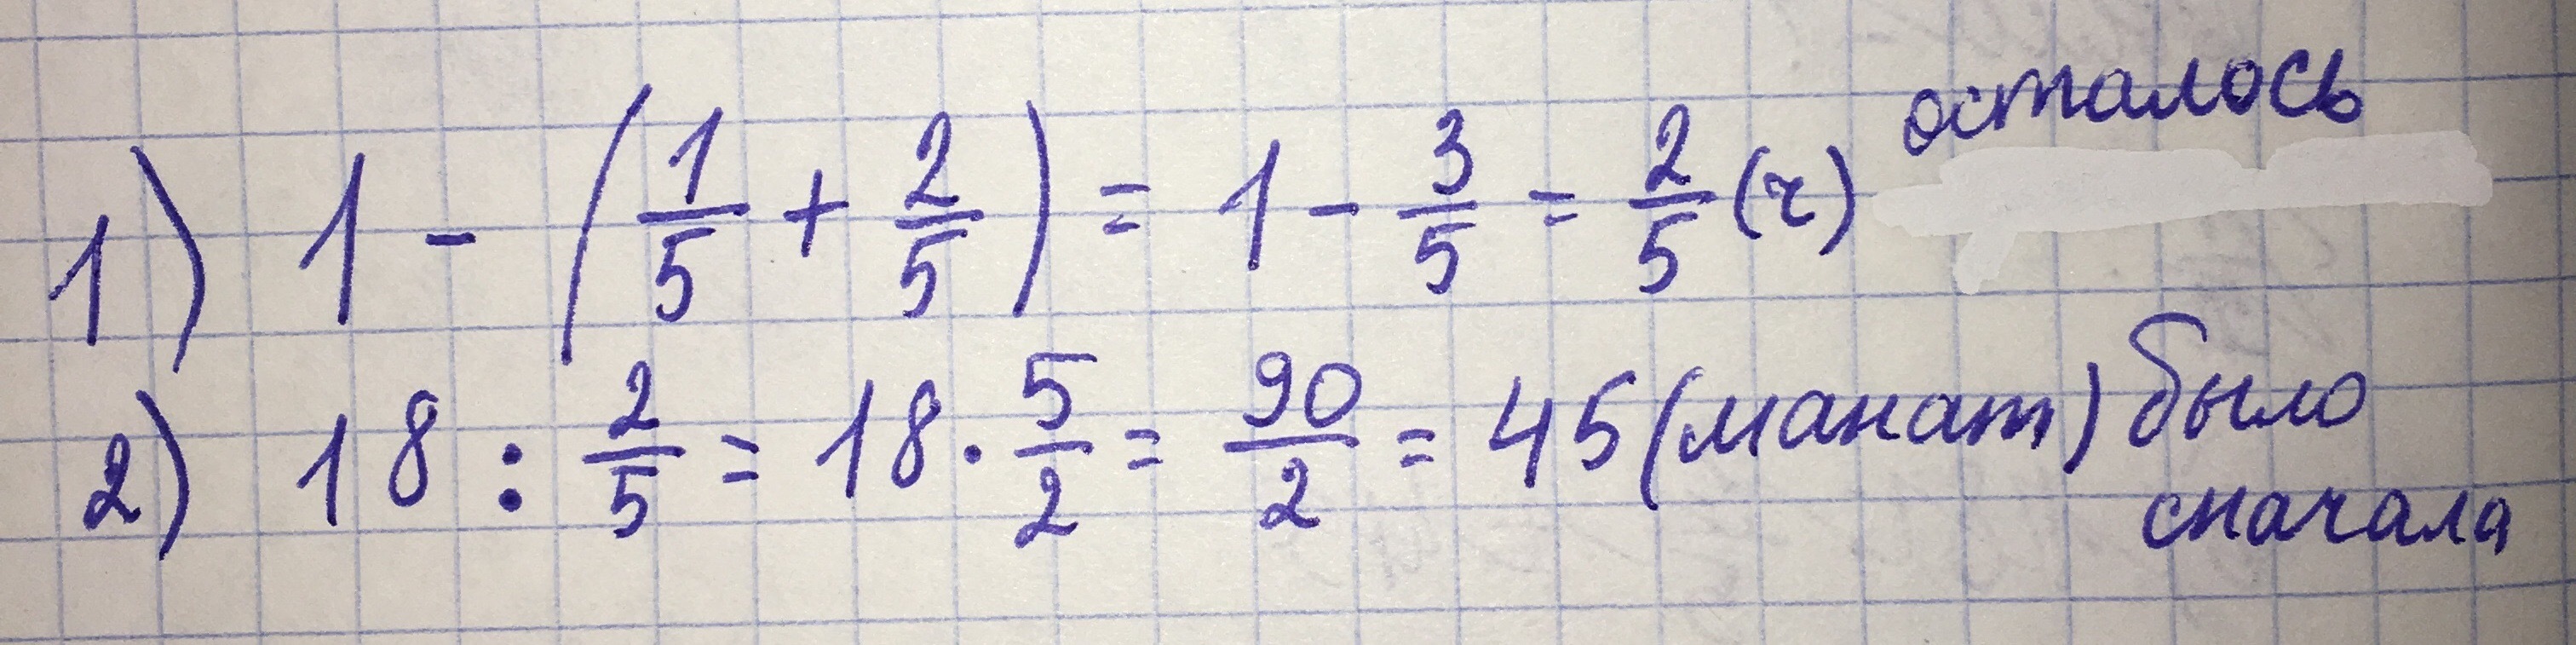 1) 1 - (1/5 + 2/5) = 1 - 3/5 = 2/5 (ч) осталось
2) 18 : 2/5 = 18 · 5/2 = 90/2 = 45 (манат) было
сначала